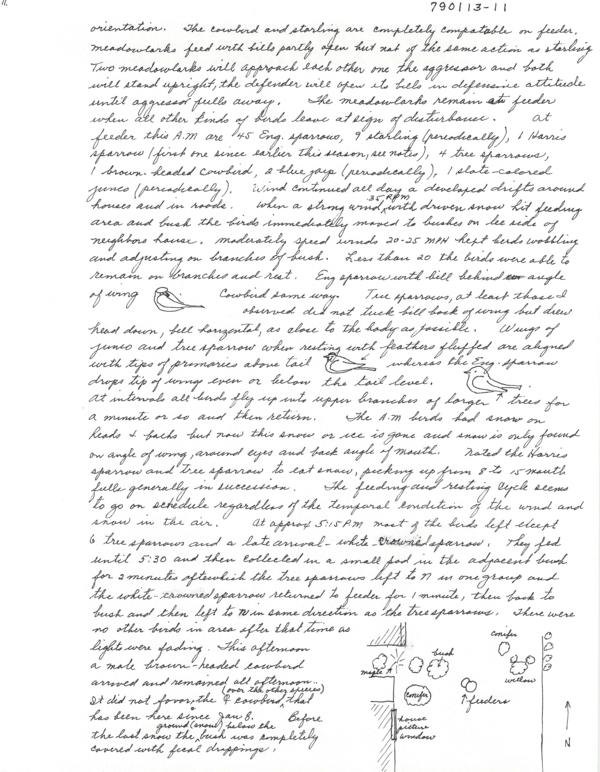 790113-11
orientation. The cowbird and starling are completely compatable on feeder,
meadowlarks feed with bills partly open but not of the same action as starling
Two meadowlarks will approach each other one the aggressor and both
will stand upright, the defender will open its bills in defensive attitude
until aggressor pulls away. The meadowlarks remain at feeder
when all other kinds of birds leave at sign of disturbance. At
feeder this A.M are 45 Eng. sparrows, 9 starling (periodically), 1 Harris
sparrow (first one since earlier this season, see notes), 4 tree sparrows,
1 brown-headed cowbird, 2 blue jays (periodically), 1 slate-colored
junco (periodically). Wind continued all day & developed drifts around
houses and in roads. When a strong wind, 35 MPH with driven snow hit feeding
area and bush the birds immediately moved to bushes on lee side of
neighbors house. Moderately speed winds 20-25 MPH kept birds wobbling
and adjusting on branches of bush. Less than 20 the birds were able to
remain on branches and rest. Eng sparrow with bill behind angle
of wing Cowbird same way. Tree sparrows, at least those I
observed did not tuck bill back of wing but drew
head down, bill horizontal, as close to the body as possible. Wings of
junco and tree sparrow when resting with feathers fluffed are aligned
with tips of primaries above tail whereas the Eng. sparrow
drops tip of wings even or below the tail level.
At intervals all birds fly up into upper branches of larger trees for
a minute or so and then return. The A.M birds had snow on
heads & backs but now this snow or ice is gone and snow is only found
on angle of wing, around eyes and back angle of mouth. Noted the Harris
sparrow and tree sparrow to eat snow, picking up from 8 to 15 mouth
fulls generally in succession. The feeding and resting cycle seems
to go on schedule regardless of the temporal condition of the wind and
snow in the air. At approx 5:15 PM most of the birds left except
6 tree sparrows and a late arrival - white-crowned sparrow. They fed
until 5:30 and then collected in a small pod in the adjacent bush
for 2 minutes after which the tree sparrows left to N in one group and
the white-crowned sparrow returned to feeder for 1 minute, then back to
bush and then left to N in same direction as the tree sparrows. There were
no other birds in area after that time as
lights were fading. This afternoon
a male brown-headed cowbird
arrived and remained all afternoon..
It did not favor (over the other species) the ♀ cowbird, that
has been here since Jan 8. Before
the last snow the ground (snow) below the bush was completely
covered with fecal droppings.
maple
bush
conifer
willow
conifer
↑ feeders
house
picture
window
N